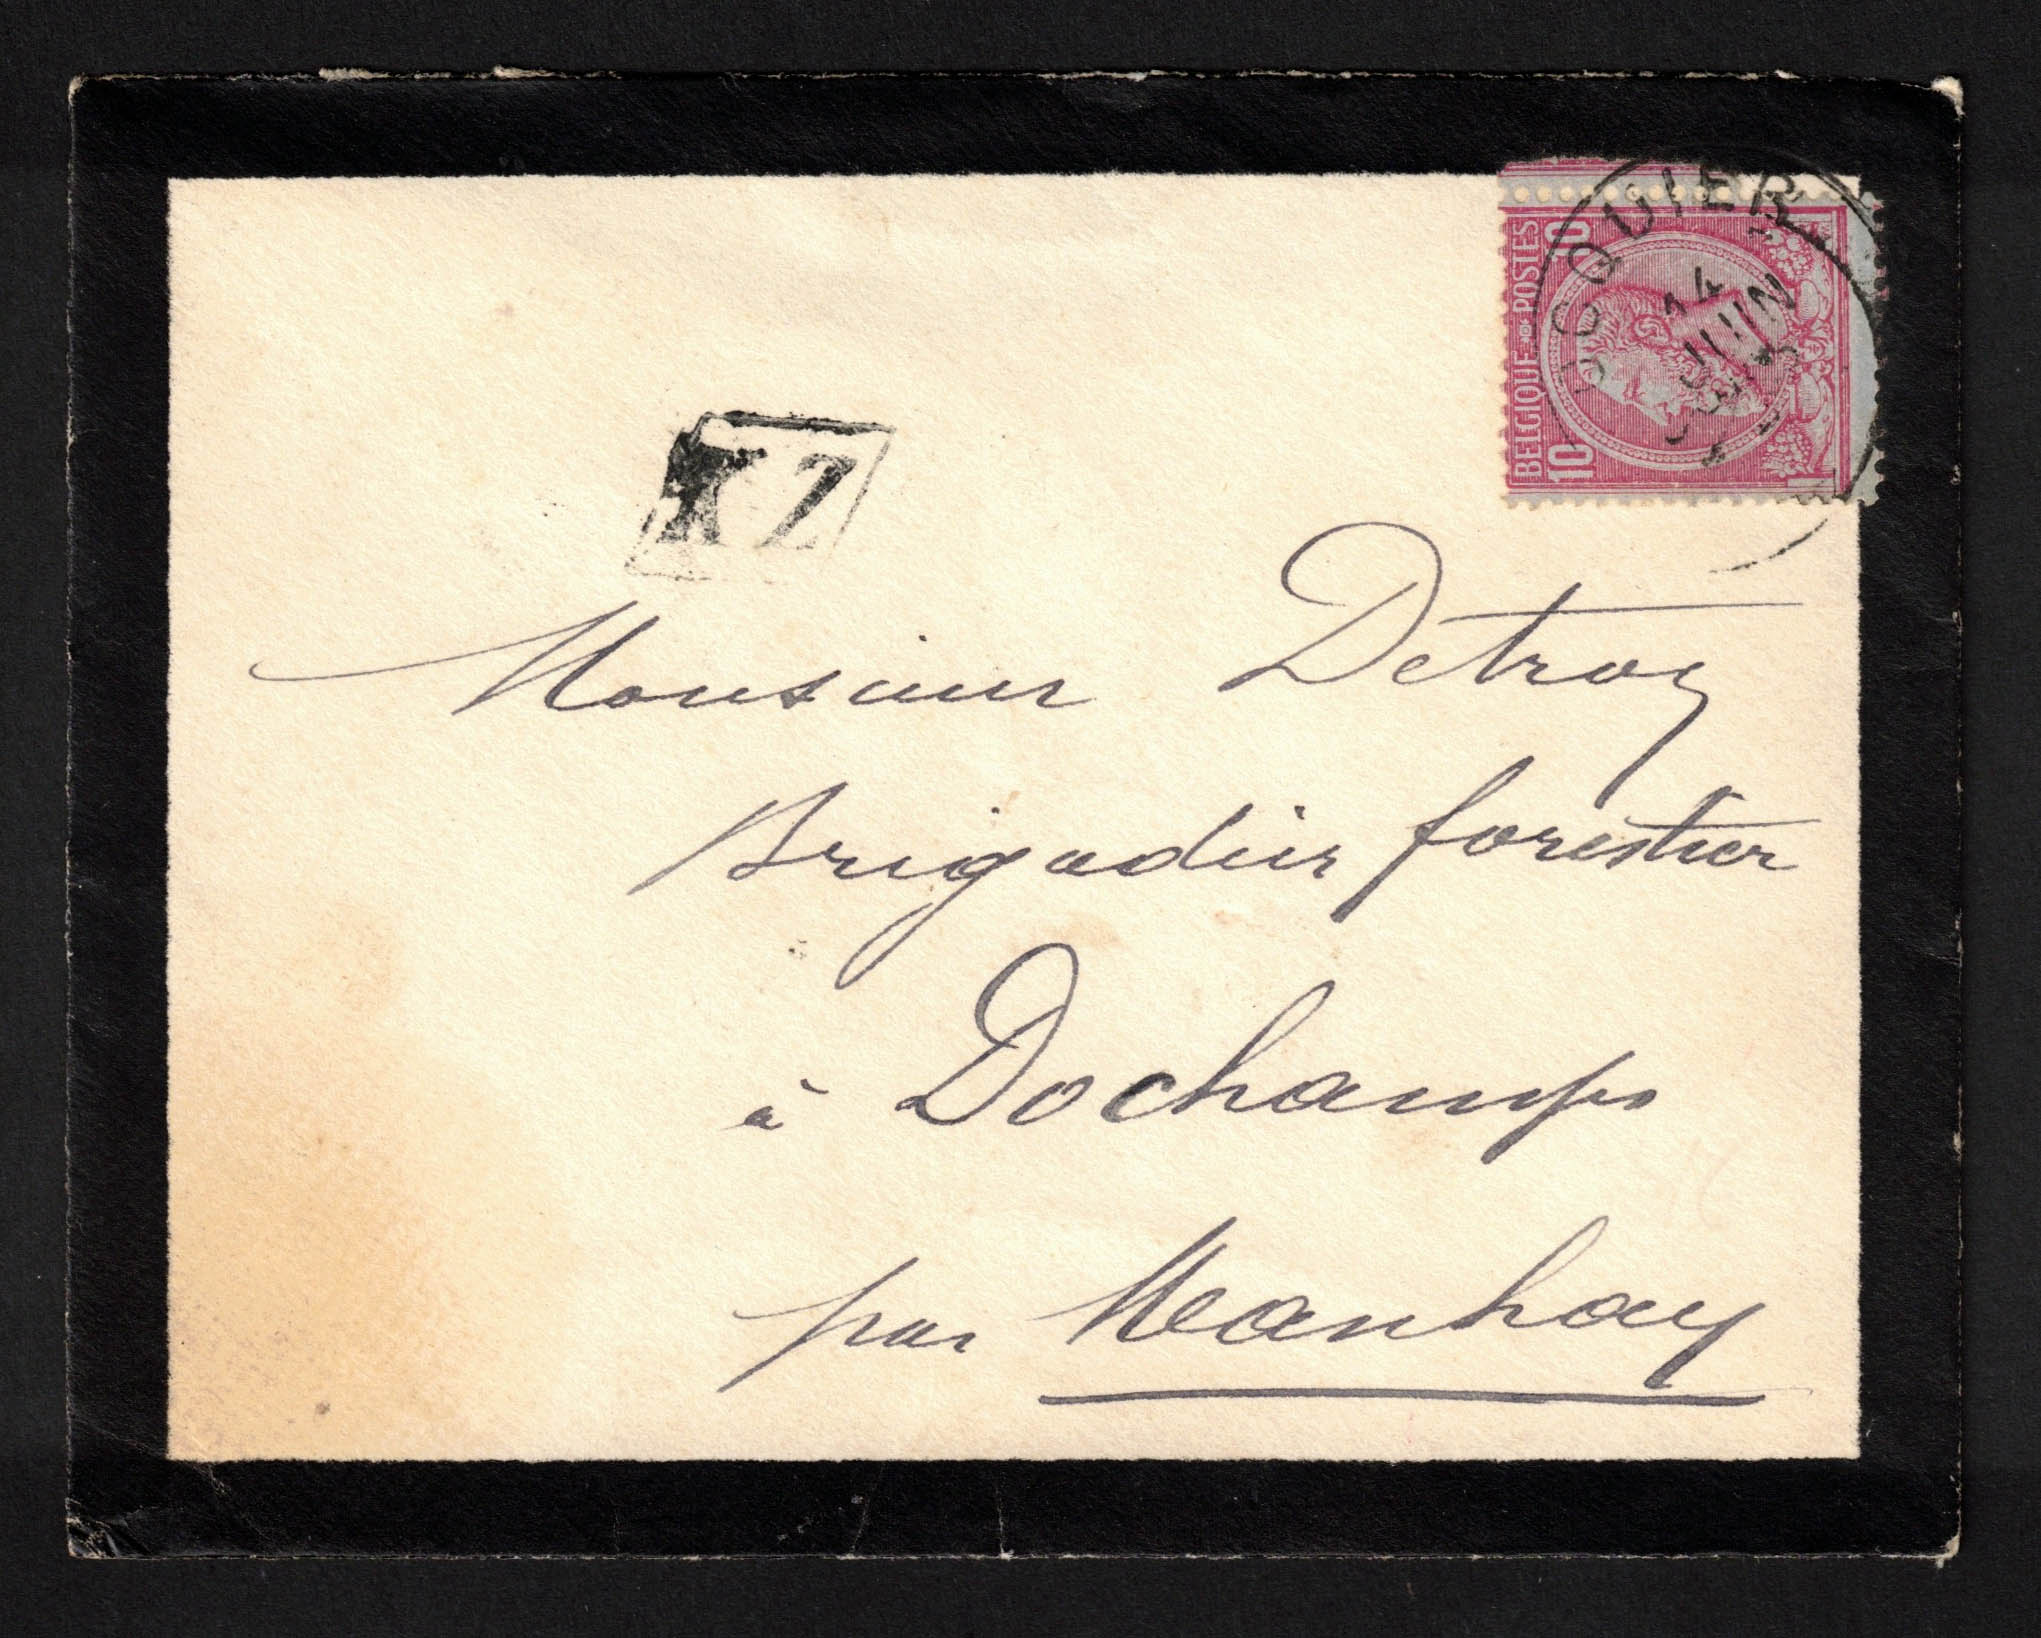 OCQUIER
14
JUIN
BELGIQUE POSTES
10 10
K Z
Monsieur Détroy
Brigadier forestier
à Dochamps
par Manhay